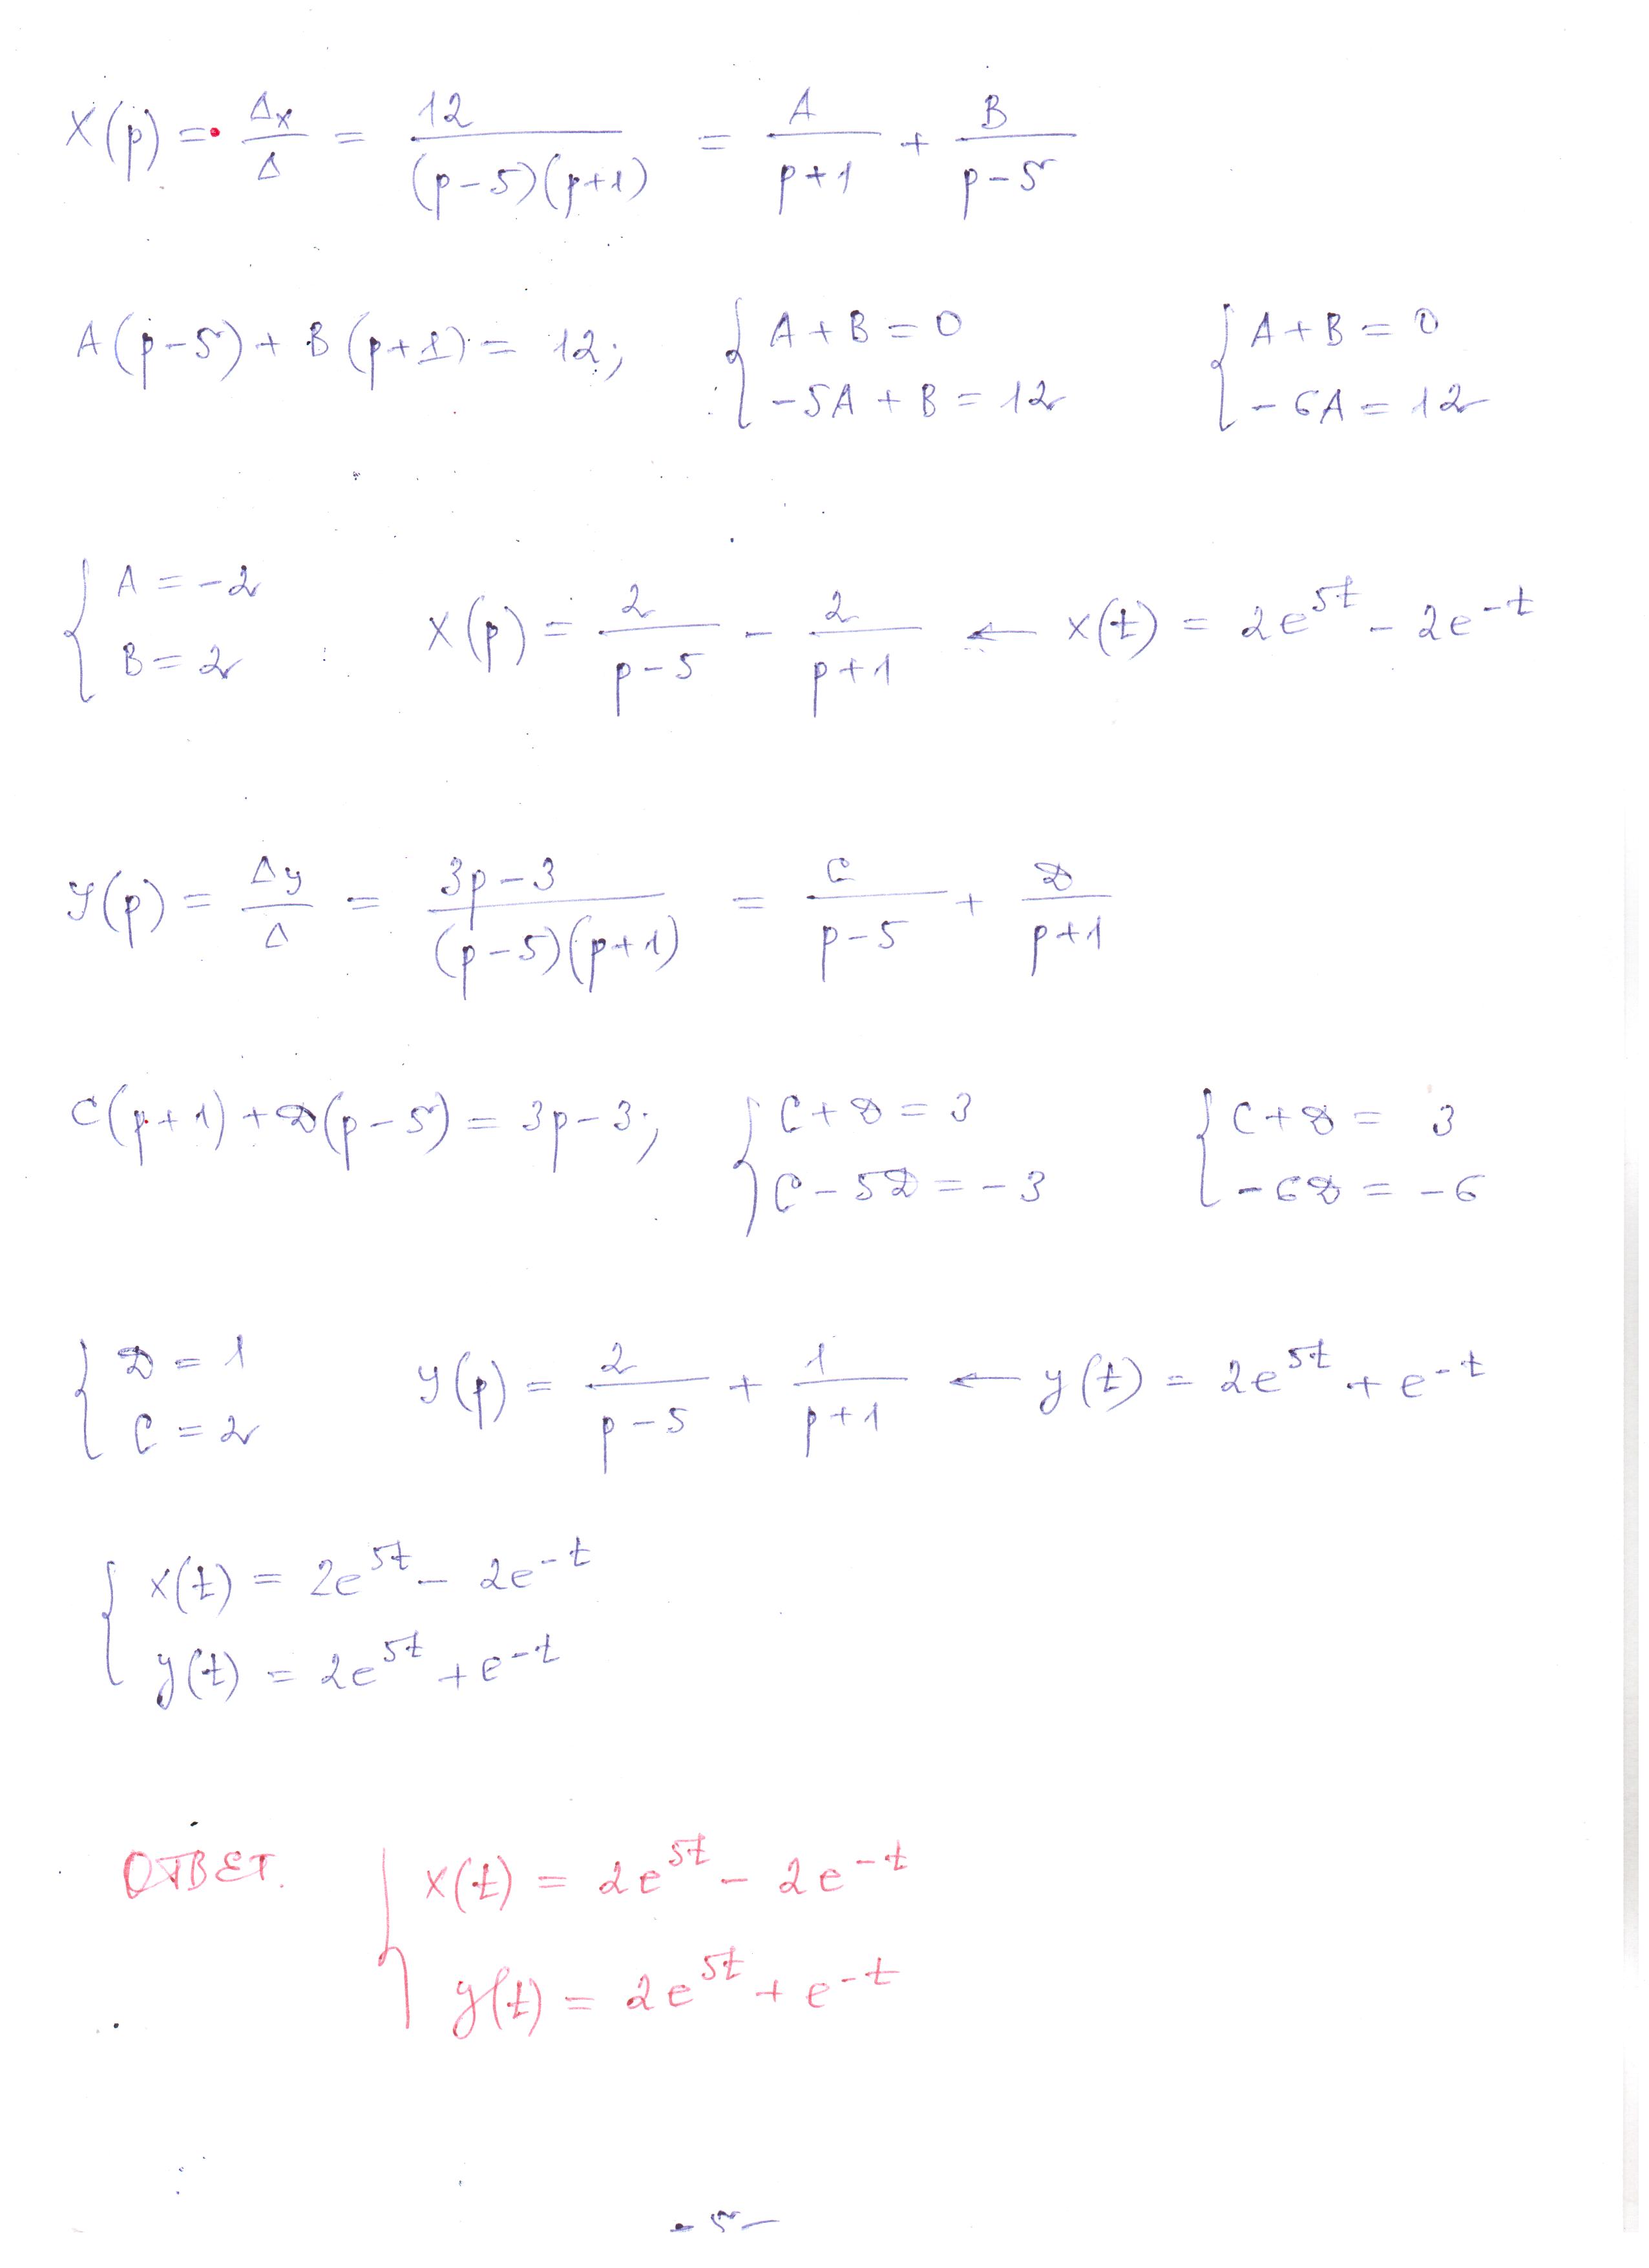 X(p) = Δx/Δ = 12/((p-5)(p+1)) = A/(p+1) + B/(p-5)
A(p-5) + B(p+1) = 12; { A+B=0 { A+B=0
-5A+B=12 -6A=12
{ A=-2
B=2 X(p) = 2/(p-5) - 2/(p+1) ← x(t) = 2e^{5t} - 2e^{-t}
Y(p) = Δy/Δ = (3p-3)/((p-5)(p+1)) = C/(p-5) + D/(p+1)
C(p+1) + D(p-5) = 3p-3; { C+D=3 { C+D=3
C-5D=-3 -6D=-6
{ D=1
C=2 Y(p) = 2/(p-5) + 1/(p+1) ← y(t) = 2e^{5t} + e^{-t}
{ x(t) = 2e^{5t} - 2e^{-t}
y(t) = 2e^{5t} + e^{-t}
ОТВЕТ. { x(t) = 2e^{5t} - 2e^{-t}
y(t) = 2e^{5t} + e^{-t}
-5-